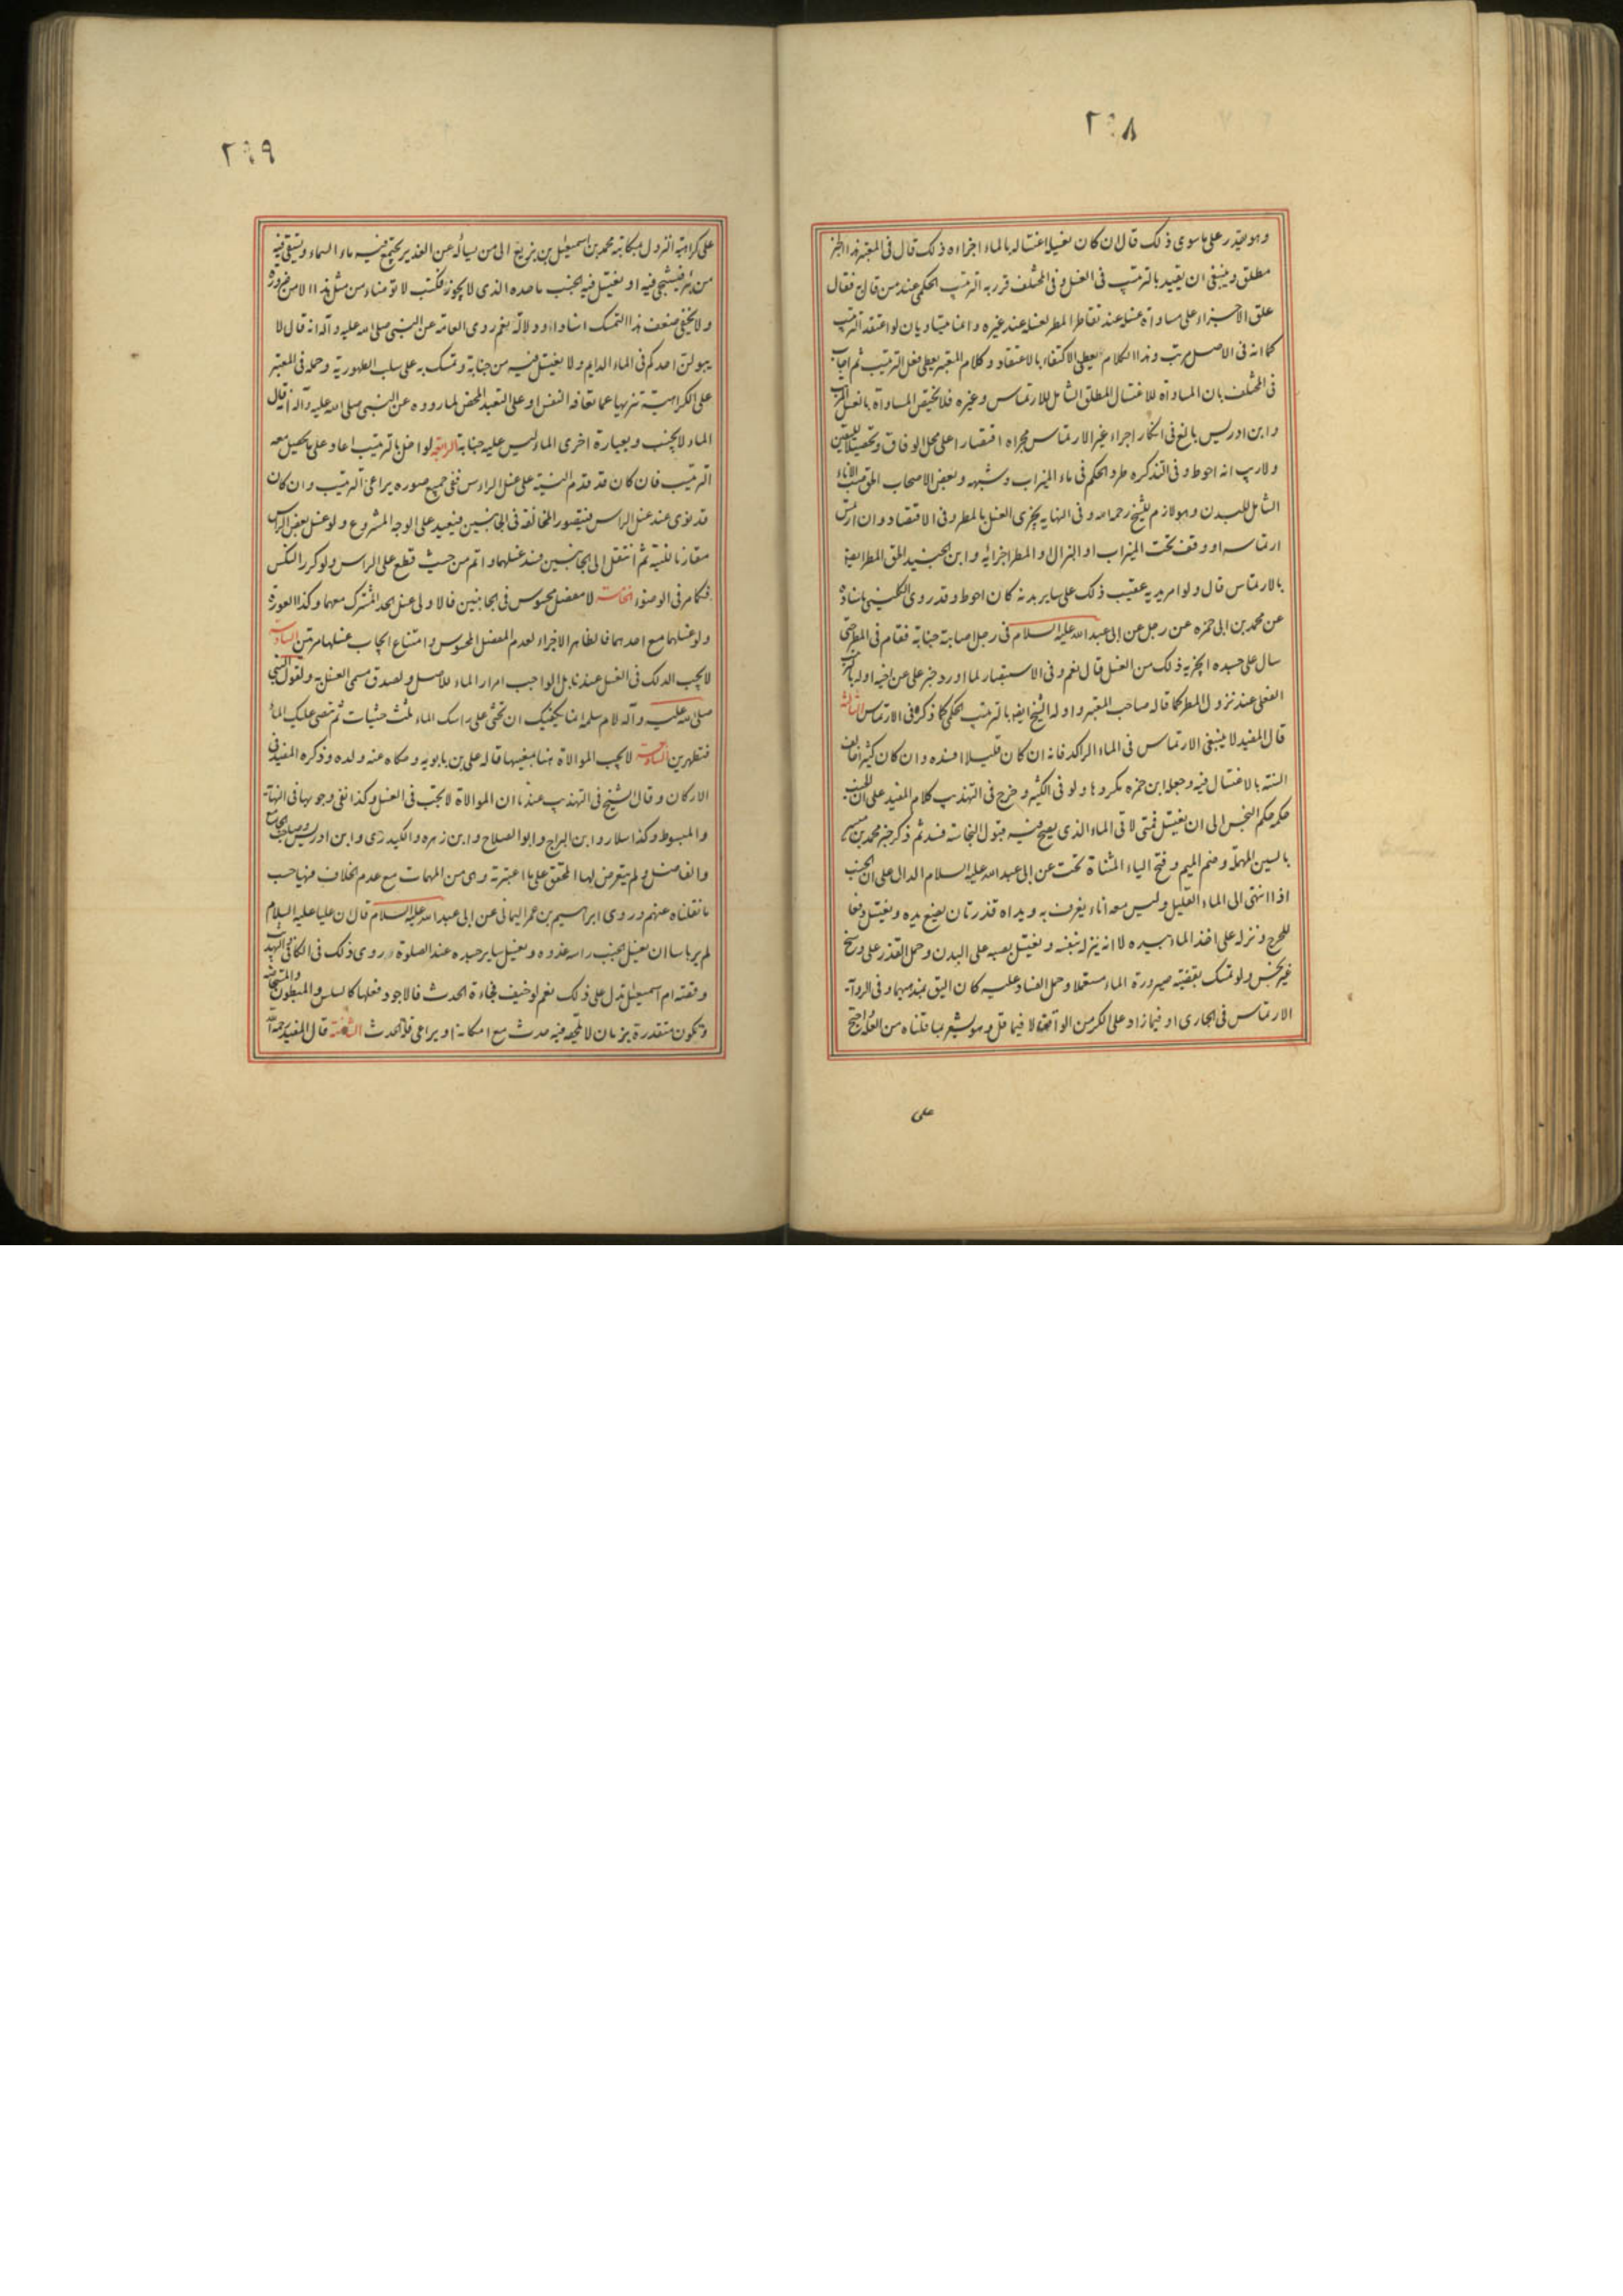 ٢٩٨
وهو يقدر على ما سوى ذلك قال ان كان يغسله اغتساله بالماء اجزاءه ذلك قال في المعتبر هذا الخبر
مطلق وينبغي ان يقيد بالترتيب في الغسل وفي المختلف قرر به الترتيب الحكمي عند من قال به فقال
علق الاجزاء على مساواة غسله عند تقاطر المطر لغسله عند غيره وانما يتساويان لو اعتقد الترتيب
كما انه في الاصل مرتب وهذا الكلام يعطي الاكتفاء بالاعتقاد وكلام المعتبر يعطي فعل الترتيب ثم اجاب
في المختلف بان المساواة للاغتسال المطلق الشامل للارتماس وغيره فلا يختص المساواة بالغسل المرتب
وابن ادريس بالغ في انكار اجراء غير الارتماس مجراه اقتصارا على محل الوفاق وتحصيلا لليقين
ولا ريب انه احوط وفي التذكره طرد الحكم في ماء الميزاب وشبهه وبعض الاصحاب الحق صب الاناء
الشامل للبدن وهو لازم للشيخ رحمه الله وفي النهايه يجزى الغسل بالمطر وفي الاقتصاد وان ارتمس
ارتماسه او وقف تحت الميزاب او البزال او المطر اجزائه وابن الجنيد الحق المطر ايضا
بالارتماس قال ولو امر يديه عقيب ذلك على ساير بدنه كان احوط وقد روى الكليني باسناده
عن محمد بن ابى حمزه عن رجل عن ابى عبد الله عليه السلام في رجل اصابته جنابة فقام في المطر حتى
سال على جسده ايجزيه ذلك من الغسل قال نعم وفي الاستبصار لما اورد خبر على عن اخيه اوله بالترتيب
الفعلى عند نزول المطر كما قاله صاحب المعتبر واوله الشيخ ايضا بالترتيب الحكمي كما ذكره في الارتماس الثالثة
قال المفيد لا ينبغي الارتماس في الماء الراكد فانه ان كان قليلا افسده وان كان كثيرا خالف
السنة بالاغتسال فيه وجعله ابن حمزه مكروها ولو في الكثير وخرج في التهذيب كلام المفيد على ان الجنب
حكمه حكم النجس الى ان يغتسل فمتى لاقى الماء الذى يصح فيه قبول النجاسة فسد ثم ذكر خبر محمد بن ميسر
بالسين المهملة وضم الميم وفتح الياء المثناة تحت عن ابى عبد الله عليه السلام الدال على ان الجنب
اذا انتهى الى الماء القليل وليس معه اناء يغرف به ويداه قذرتان يضع يده ويغتسل دفعا
للحرج ونزله على اخذ الماء بيده لا انه ينزله بنفسه ويغتسل بصبه على البدن وحمل القذر على وسخ
غير نجس ولو تمسك بقضية صيرورة الماء مستعملا وحمل الفساد عليه كان اليق بمذهبهما وفي الرواية
الارتماس في الجارى او فيما زاد على الكر من الواقف لا فيما قل وهو يشعر بما قلناه من العلة احتج
على
٢٩٩
على كراهية النزول بمكاتبة محمد بن اسمعيل بن بزيع الى من يسأله عن الغدير يجتمع فيه ماء السماء ويستقى فيه
من بئر فيستنجى فيه او يغتسل فيه الجنب ما حده الذى لا يجوز فكتب لا توضأ من مثل هذا الا من ضرورة
ولا يخفى ضعف هذا التمسك اسنادا ودلالة نعم روى العامة عن النبى صلى الله عليه وآله انه قال لا
يبولن احدكم في الماء الدايم ولا يغتسل فيه من جنابة وتمسك به على سلب الطهورية وحمله في المعتبر
على الكراهية تنزيها عما تعافه النفس او على التعبد المحض لما رووه عن النبى صلى الله عليه وآله انه قال
الماء لا يجنب وبعبارة اخرى الماء ليس عليه جنابة الرابعة لو اخل بالترتيب اعاد على ما يحصل معه
الترتيب فان كان قد قدم النية على غسل الراس ففي جميع صوره يراعى الترتيب وان كان
قد نوى عند غسل الراس فيتصور المخالفة في الجانبين فيعيد على الوجه المشروع ولو غسل بعض الراس
مقارنا للنية ثم انتقل الى الجانبين فسد غسلهما واتم من حيث قطع على الراس ولو كرر النكس
فكما مر في الوضوء الخامسة لا مفصل محسوس في الجانبين فالاولى غسل الحد المشترك معهما وكذا العورة
ولو غسلهما مع احدهما فالظاهر الاجزاء لعدم المفصل المحسوس وامتناع ايجاب غسلها مرتين السادسة
لا يجب الدلك في الغسل عندنا بل الواجب امرار الماء للاصل ولصدق مسمى الغسل به ولقول النبى
صلى الله عليه وآله لام سلمة انما يكفيك ان تحثى على راسك الماء ثلث حثيات ثم تفيض عليك الماء
فتطهرين السابعة لا يجب الموالاة هنا بمعنييها قاله على بن بابويه وحكاه عنه ولده وذكره المفيد في
الاركان وقال الشيخ في التهذيب عندنا ان الموالاة لا يجب في الغسل وكذا نفى وجوبها في النهاية
والمبسوط وكذا سلار وابن البراج وابو الصلاح وابن زهره والكيدرى وابن ادريس وصاحب الجامع
والفاضل ولم يتعرض لها المحقق على ما اعتبرته وهى من المهمات مع عدم الخلاف فيها حسب
ما نقلناه عنهم وروى ابراهيم بن عمر اليمانى عن ابى عبد الله عليه السلام قال ان عليا عليه السلام
لم ير باسا ان يغسل الجنب راسه غدوه ويغسل ساير جسده عند الصلوة وروى ذلك في الكافي والتهذيب
وقصة ام اسمعيل تدل على ذلك نعم لو خيف فجاءة الحدث فالاجود فعلها كالسلس والمبطون والمستحاضة
وتكون متقدرة بزمان لا يتجه فيه حدث مع امكانه او يراعى قلة الحدث الثامنة قال المفيد رحمه الله